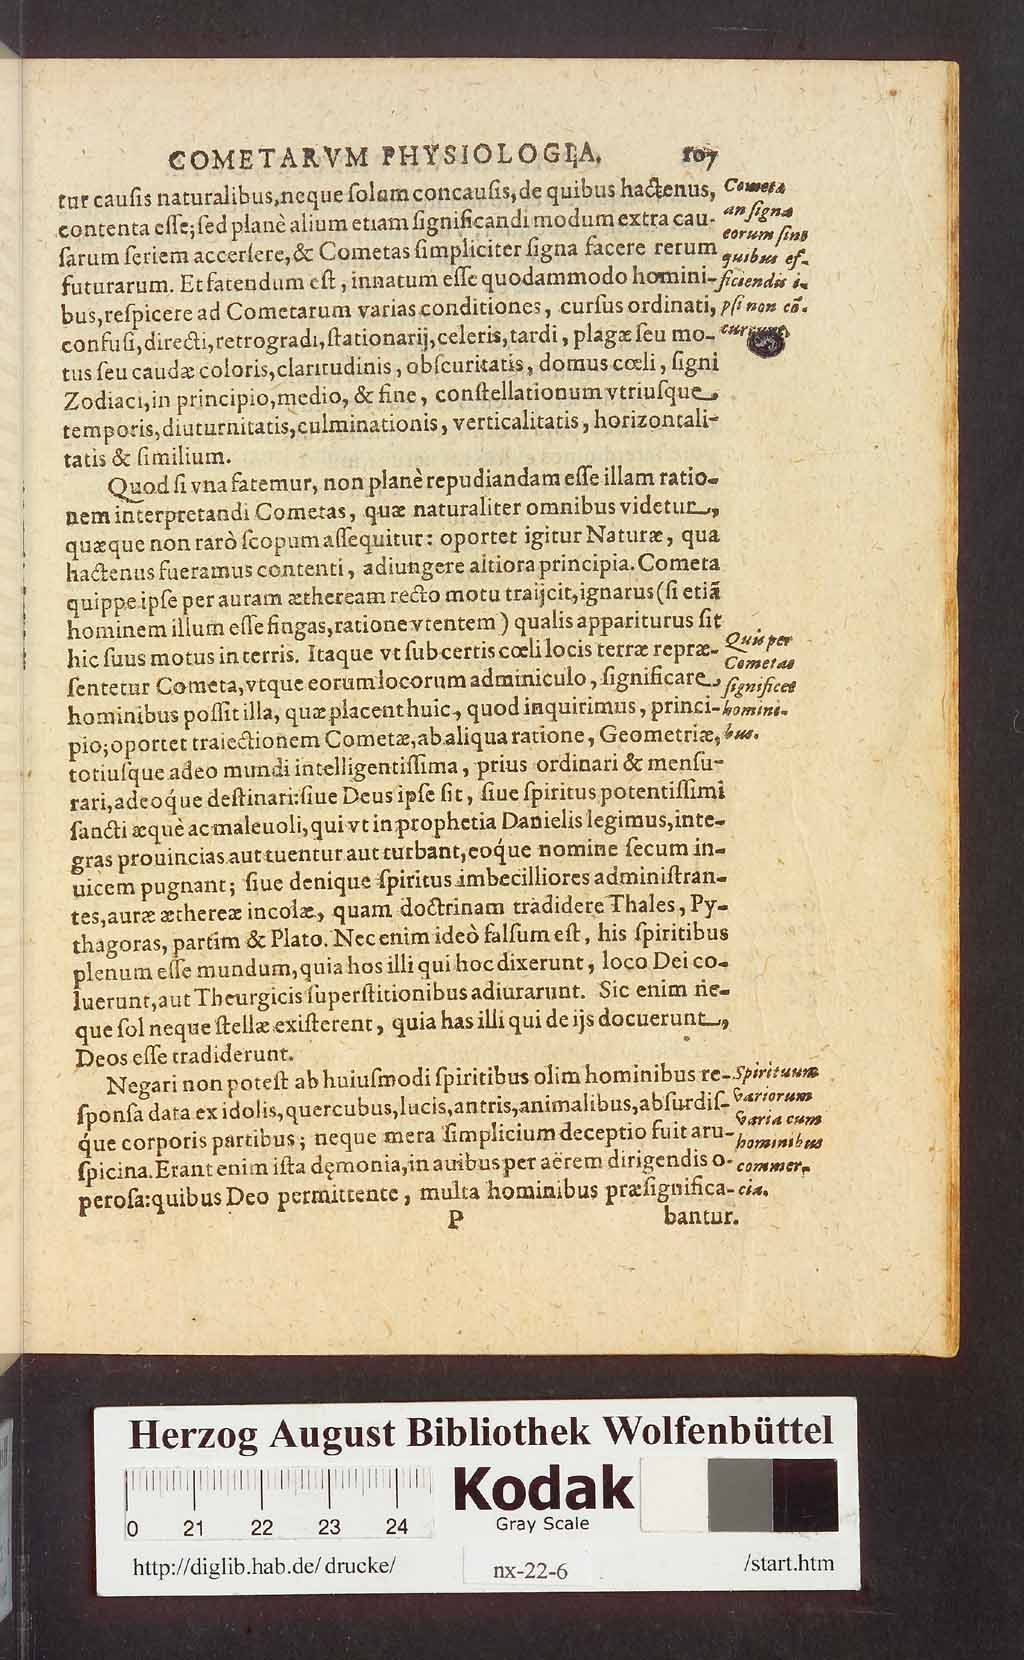 COMETARVM PHYSIOLOGIA. 107
tur cauſis naturalibus, neque ſolum concauſis, de quibus hactenus,
contenta eſſe; ſed planè alium etiam ſignificandi modum extra cau-
ſarum ſeriem accerſere, & Cometas ſimpliciter ſigna facere rerum
futurarum. Et fatendum eſt, innatum eſſe quodammodo homini-
bus, reſpicere ad Cometarum varias conditiones, curſus ordinati,
confuſi, directi, retrogradi, ſtationarij, celeris, tardi, plagæ ſeu mo-
tus ſeu caudæ coloris, claritudinis, obſcuritatis, domus cœli, ſigni
Zodiaci, in principio, medio, & fine, conſtellationum vtriuſque
temporis, diuturnitatis, culminationis, verticalitatis, horizontali-
tatis & ſimilium.
Cometa
an ſigna
eorum ſint
quibus ef-
ficiendis i-
pſi non cō-
currunt.
Quod ſi vna fatemur, non planè repudiandam eſſe illam ratio-
nem interpretandi Cometas, quæ naturaliter omnibus videtur,
quæque non rarò ſcopum aſſequitur: oportet igitur Naturæ, qua
hactenus fueramus contenti, adiungere altiora principia. Cometa
quippe ipſe per auram ætheream recto motu traijcit, ignarus (ſi etiā
hominem illum eſſe fingas, ratione vtentem) qualis appariturus ſit
hic ſuus motus in terris. Itaque vt ſub certis cœli locis terræ repræ-
ſentetur Cometa, vtque eorum locorum adminiculo, ſignificare
hominibus poſſit illa, quæ placent huic, quod inquirimus, princi-
pio; oportet traiectionem Cometæ, ab aliqua ratione, Geometriæ,
totiuſque adeo mundi intelligentiſſima, prius ordinari & menſu-
rari, adeoq́ue deſtinari: ſiue Deus ipſe ſit, ſiue ſpiritus potentiſſimi
ſancti æquè ac maleuoli, qui vt in prophetia Danielis legimus, inte-
gras prouincias aut tuentur aut turbant, eoq́ue nomine ſecum in-
uicem pugnant; ſiue denique ſpiritus imbecilliores adminiſtran-
tes, auræ æthereæ incolæ, quam doctrinam tradidere Thales, Py-
thagoras, partim & Plato. Nec enim ideò falſum eſt, his ſpiritibus
plenum eſſe mundum, quia hos illi qui hoc dixerunt, loco Dei co-
luerunt, aut Theurgicis ſuperſtitionibus adiurarunt. Sic enim ne-
que ſol neque ſtellæ exiſterent, quia has illi qui de ijs docuerunt,
Deos eſſe tradiderunt.
Quis per
Cometas
ſignificet
homini-
bus.
Negari non poteſt ab huiuſmodi ſpiritibus olim hominibus re-
ſponſa data ex idolis, quercubus, lucis, antris, animalibus, abſurdiſ-
q́ue corporis partibus; neque mera ſimplicium deceptio fuit aru-
ſpicina. Erant enim iſta dęmonia, in auibus per aërem dirigendis o-
peroſa: quibus Deo permittente, multa hominibus præſignifica-
Spirituum
variorum
varia cum
hominibus
commer-
cia.
P bantur.
Herzog August Bibliothek Wolfenbüttel
Kodak
Gray Scale
0 21 22 23 24
http://diglib.hab.de/drucke/ nx-22-6 /start.htm